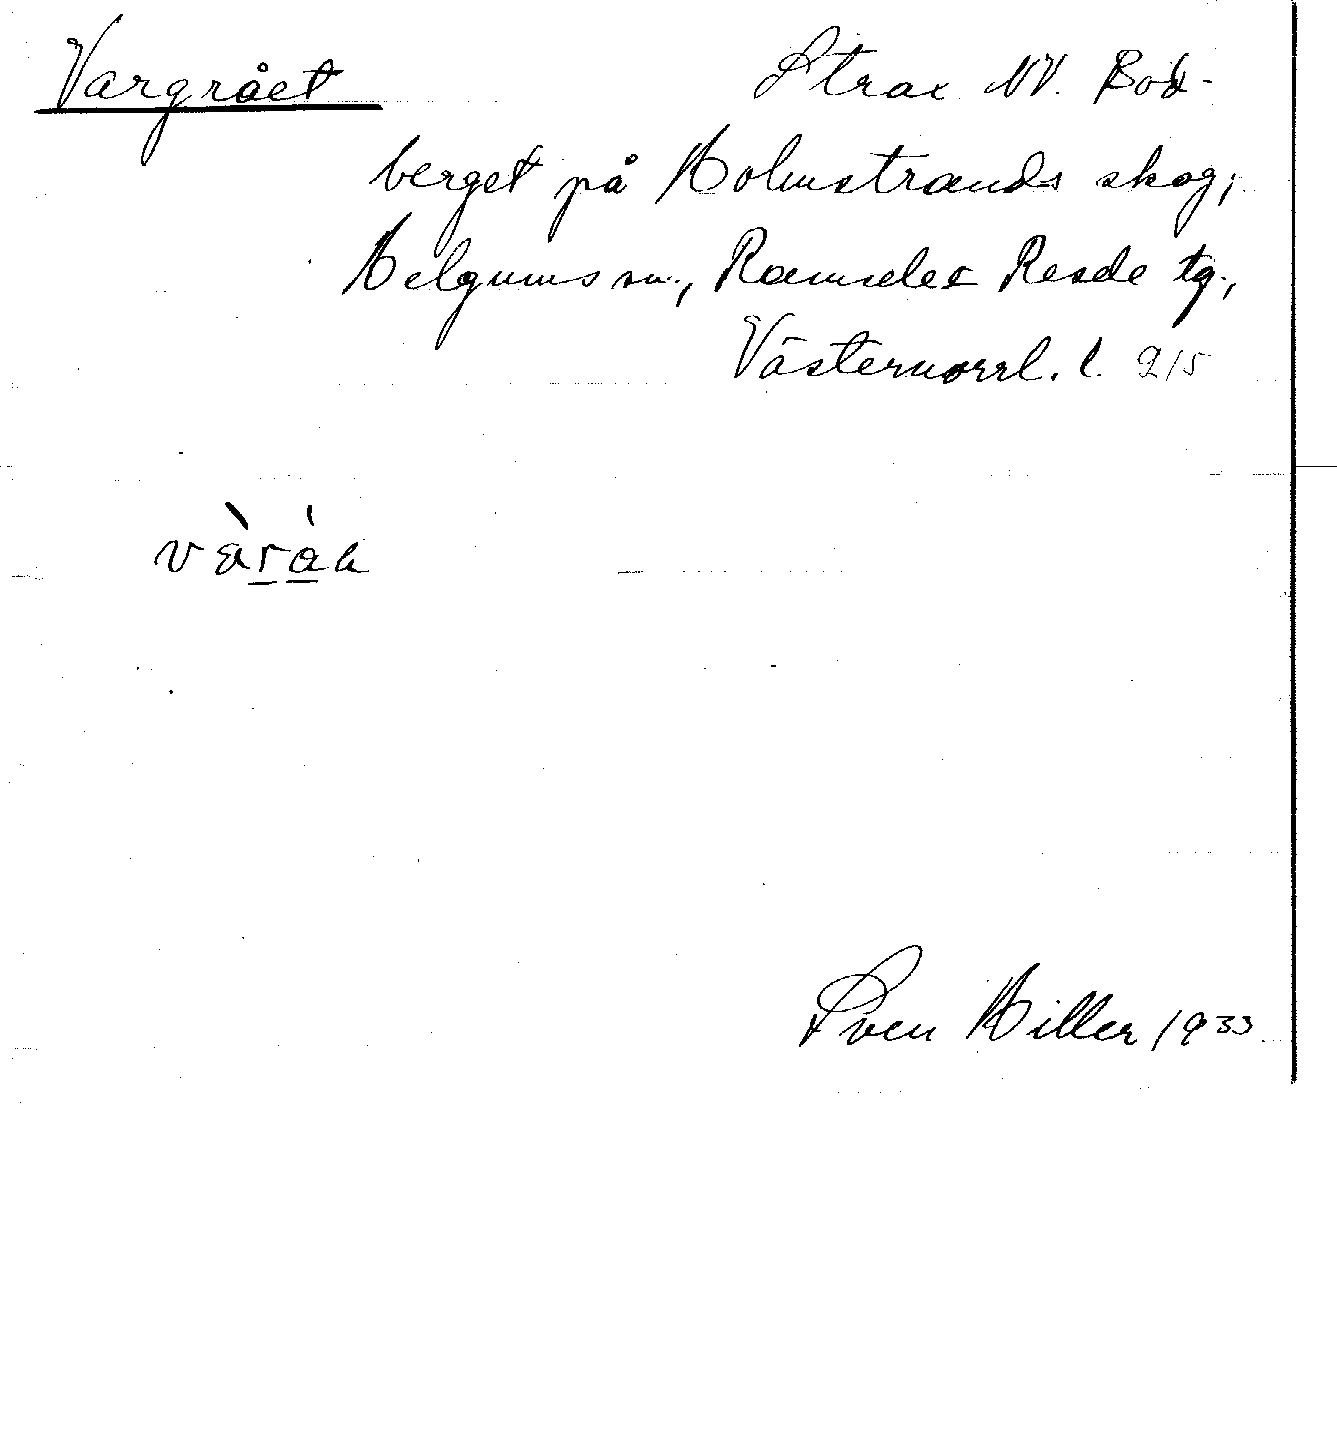 Vargrået Strax NV. Bod-
berget på Holmstrands skog,
Helgums sn., Ramsele & Resele tg.,
Västernorrl. l. 2/5
vàràh
Sven Hiller 1933